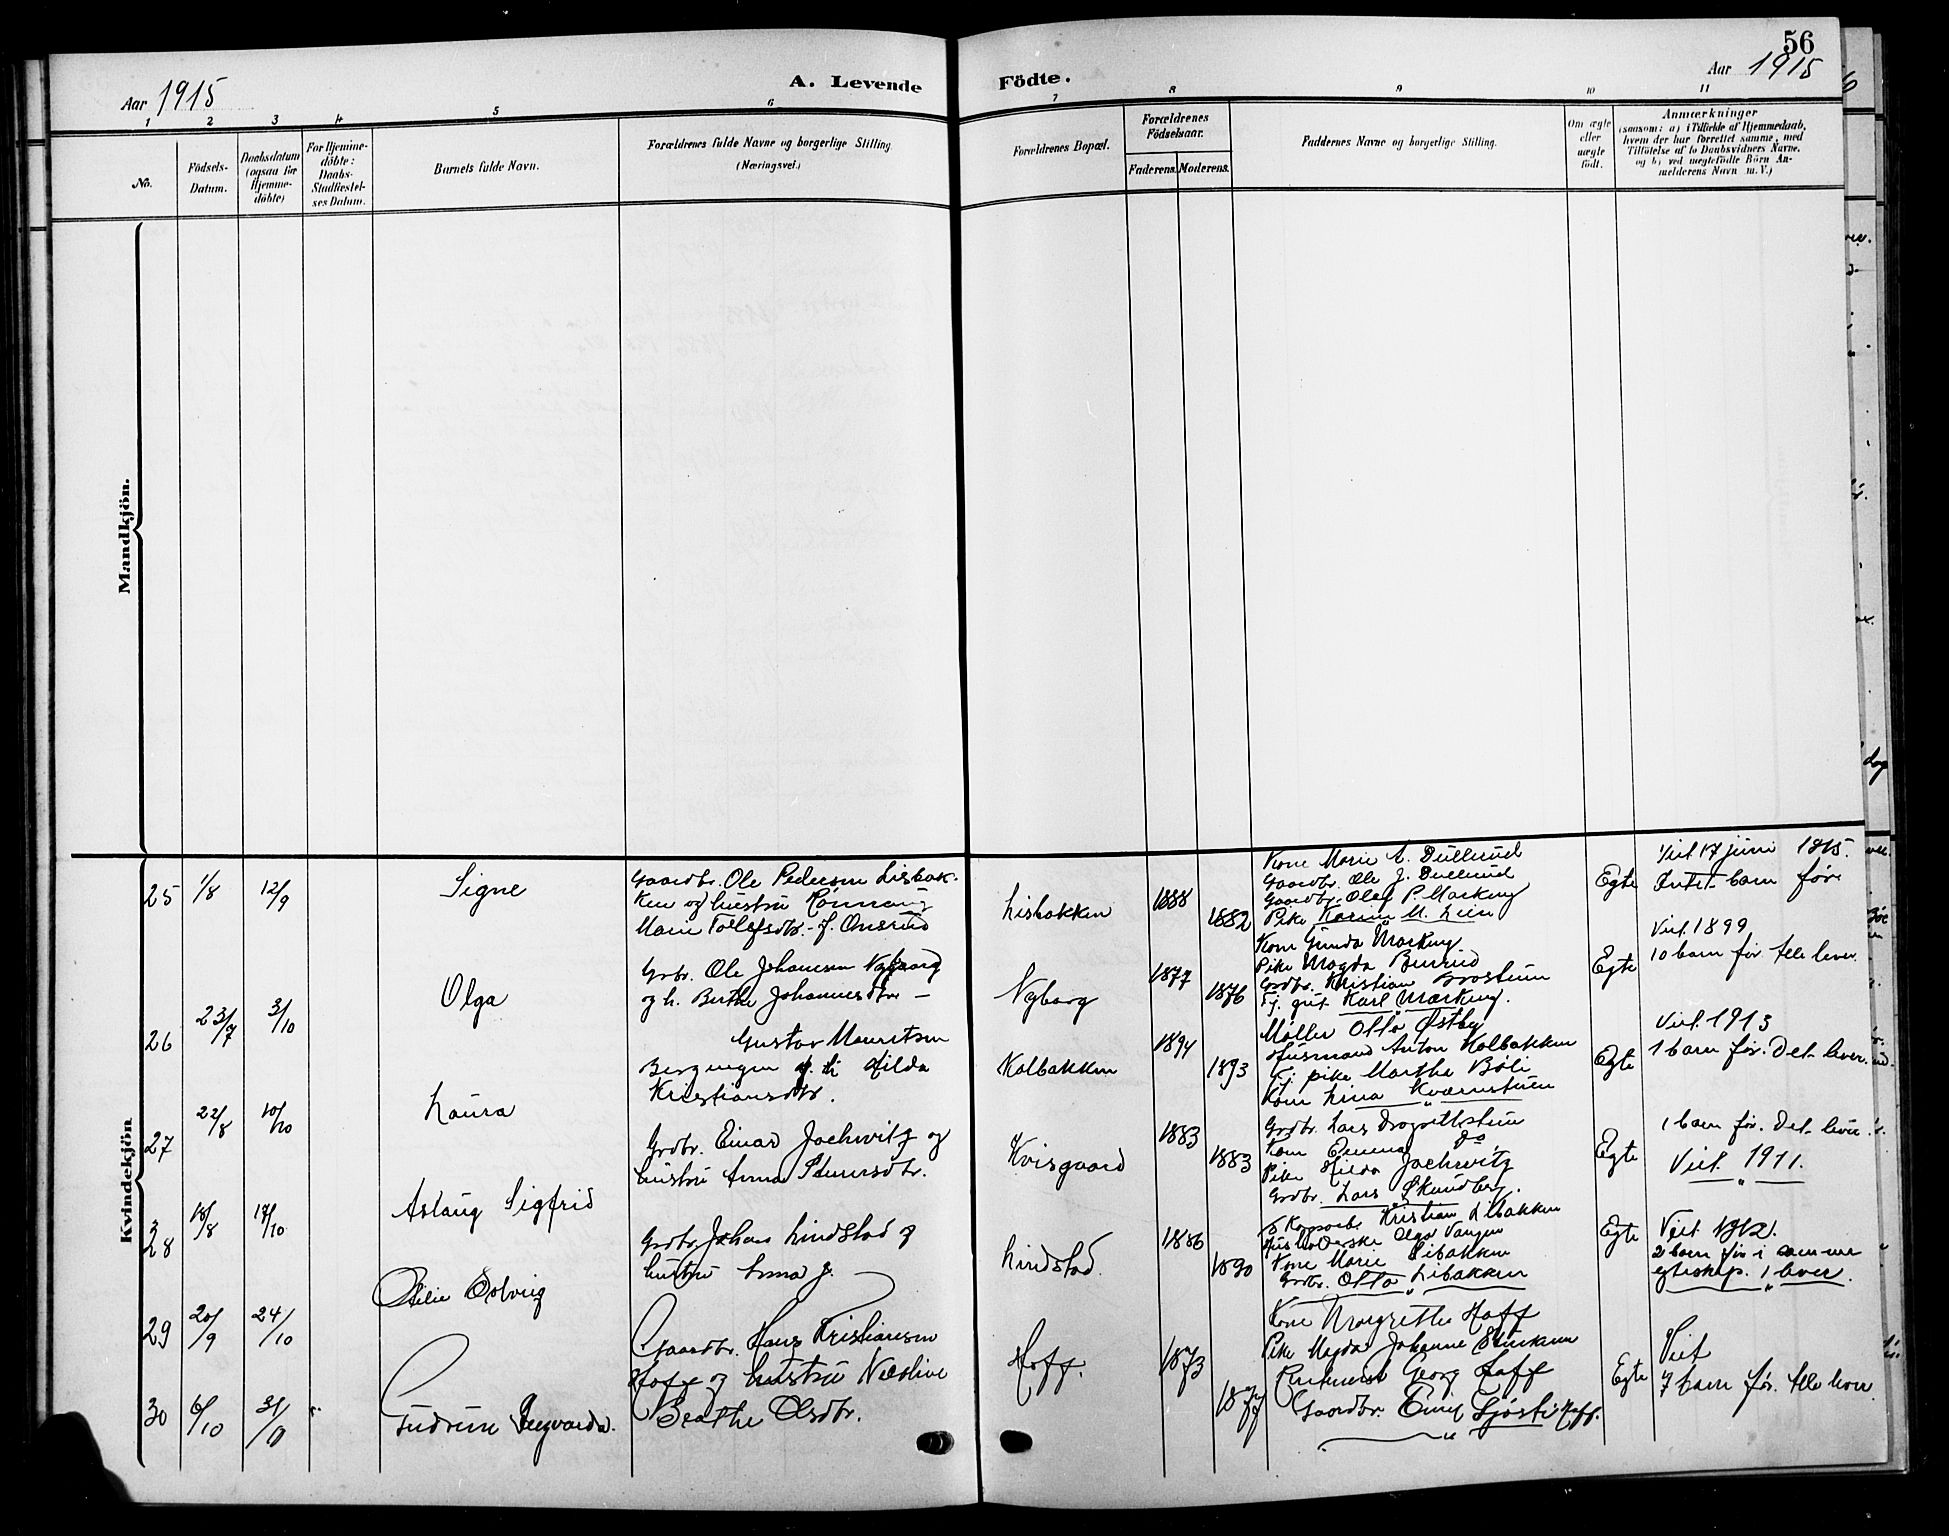 56
Aar 1915
A. Levende
Födte.
Aar 1915
1 2 3 4 5 6 7 8 9 10 11
No.
Födsels-
Datum.
Daabsdatum
(ogsaa for
Hjemme-
döbte)
For Hjemme-
döbte:
Daabs-
Stadfæstel-
ses Datum.
Barnets fulde Navn.
Forældrenes fulde Navne og borgerlige Stilling
(Næringsvei.)
Forældrenes Bopæl.
Forældrenes
Födselsaar.
Faderens. Moderens.
Faddernes Navne og borgerlige Stilling.
Om ægte
eller
uægte
født.
Anmærkninger
(saasom: a) i Tilfælde af Hjemmedaab,
hvem der har forrettet samme, med
Tilföielse af to Daabsvidners Navne,
og b) ved uægtefödte Börn An-
melderens Navn m. V.)
Mandkjön.
Kvindekjön
25 1/8 12/9 Signe
Gaardbr. Ole Pedersen Lisbak-
ken og hustru Rønnaug
Marie Tollefsdtr. f. Onsrud
Lisbakken 1888 1882
Kone Marie A. Dullerud
Gaardbr. Ole J. Dullerud
Gaardbr. Olaf P. Markeng
Pike Karen M. Lien
Egte
Viet 17 juni 1915.
Intet barn før
26 23/7 3/10 Olga
Grbr. Ole Johansen Nyborg
og h. Berthe Johannesdtr
Nyborg 1877 1876
Kone Gunda Markeng
Pike Magda
Grdbr. Kristian
Tj. gut Karl Markeng.
Egte
Viet 1899
10 barn før. Alle lever.
27 22/8 10/10 Laura
Gustav Mauritsen
Bergengen og h. Hilda
Kristiansdtr.
Kolbakken 1894 1893
Møller Otto Østby
Husmand Anton Kolbakken
Tj. pike Marthe Bøli
Kone Lina Kværnstuen
Egte
Viet 1913
1 barn før. Det lever.
28 18/8 17/10 Aslaug Sigfrid
Grdbr. Einar Jachwitz og
hustru Anna
Kvisgaard 1883 1883
Grdbr. Lars
Kone Emma do
Pike Hilda Jachwitz
Grdbr. Lars Skundberg.
Egte
1 barn før. Det lever.
Viet 1911.
29 20/9 24/10 Otilie Solveig
Grdbr. Johan Lindstad og
hustru Anna J.
Lindstad. 1886 1890
Kristian Libakken
Olga Vangen
Kone Marie Libakken
Grdbr. Otto Libakken
Egte
Viet 1912.
2 barn før i samme
egteskap. 1 lever.
30 6/10 31/10 Gudrun
Gaardbr. Hans Kristiansen
Hoff og hustru
Beathe Olsdtr.
Hoff. 1873 1877
Kone Margrethe Hoff
Pike Magda Johanne
Georg Hoff
Gaardbr.
Egte
Viet
7 barn før. Alle lever